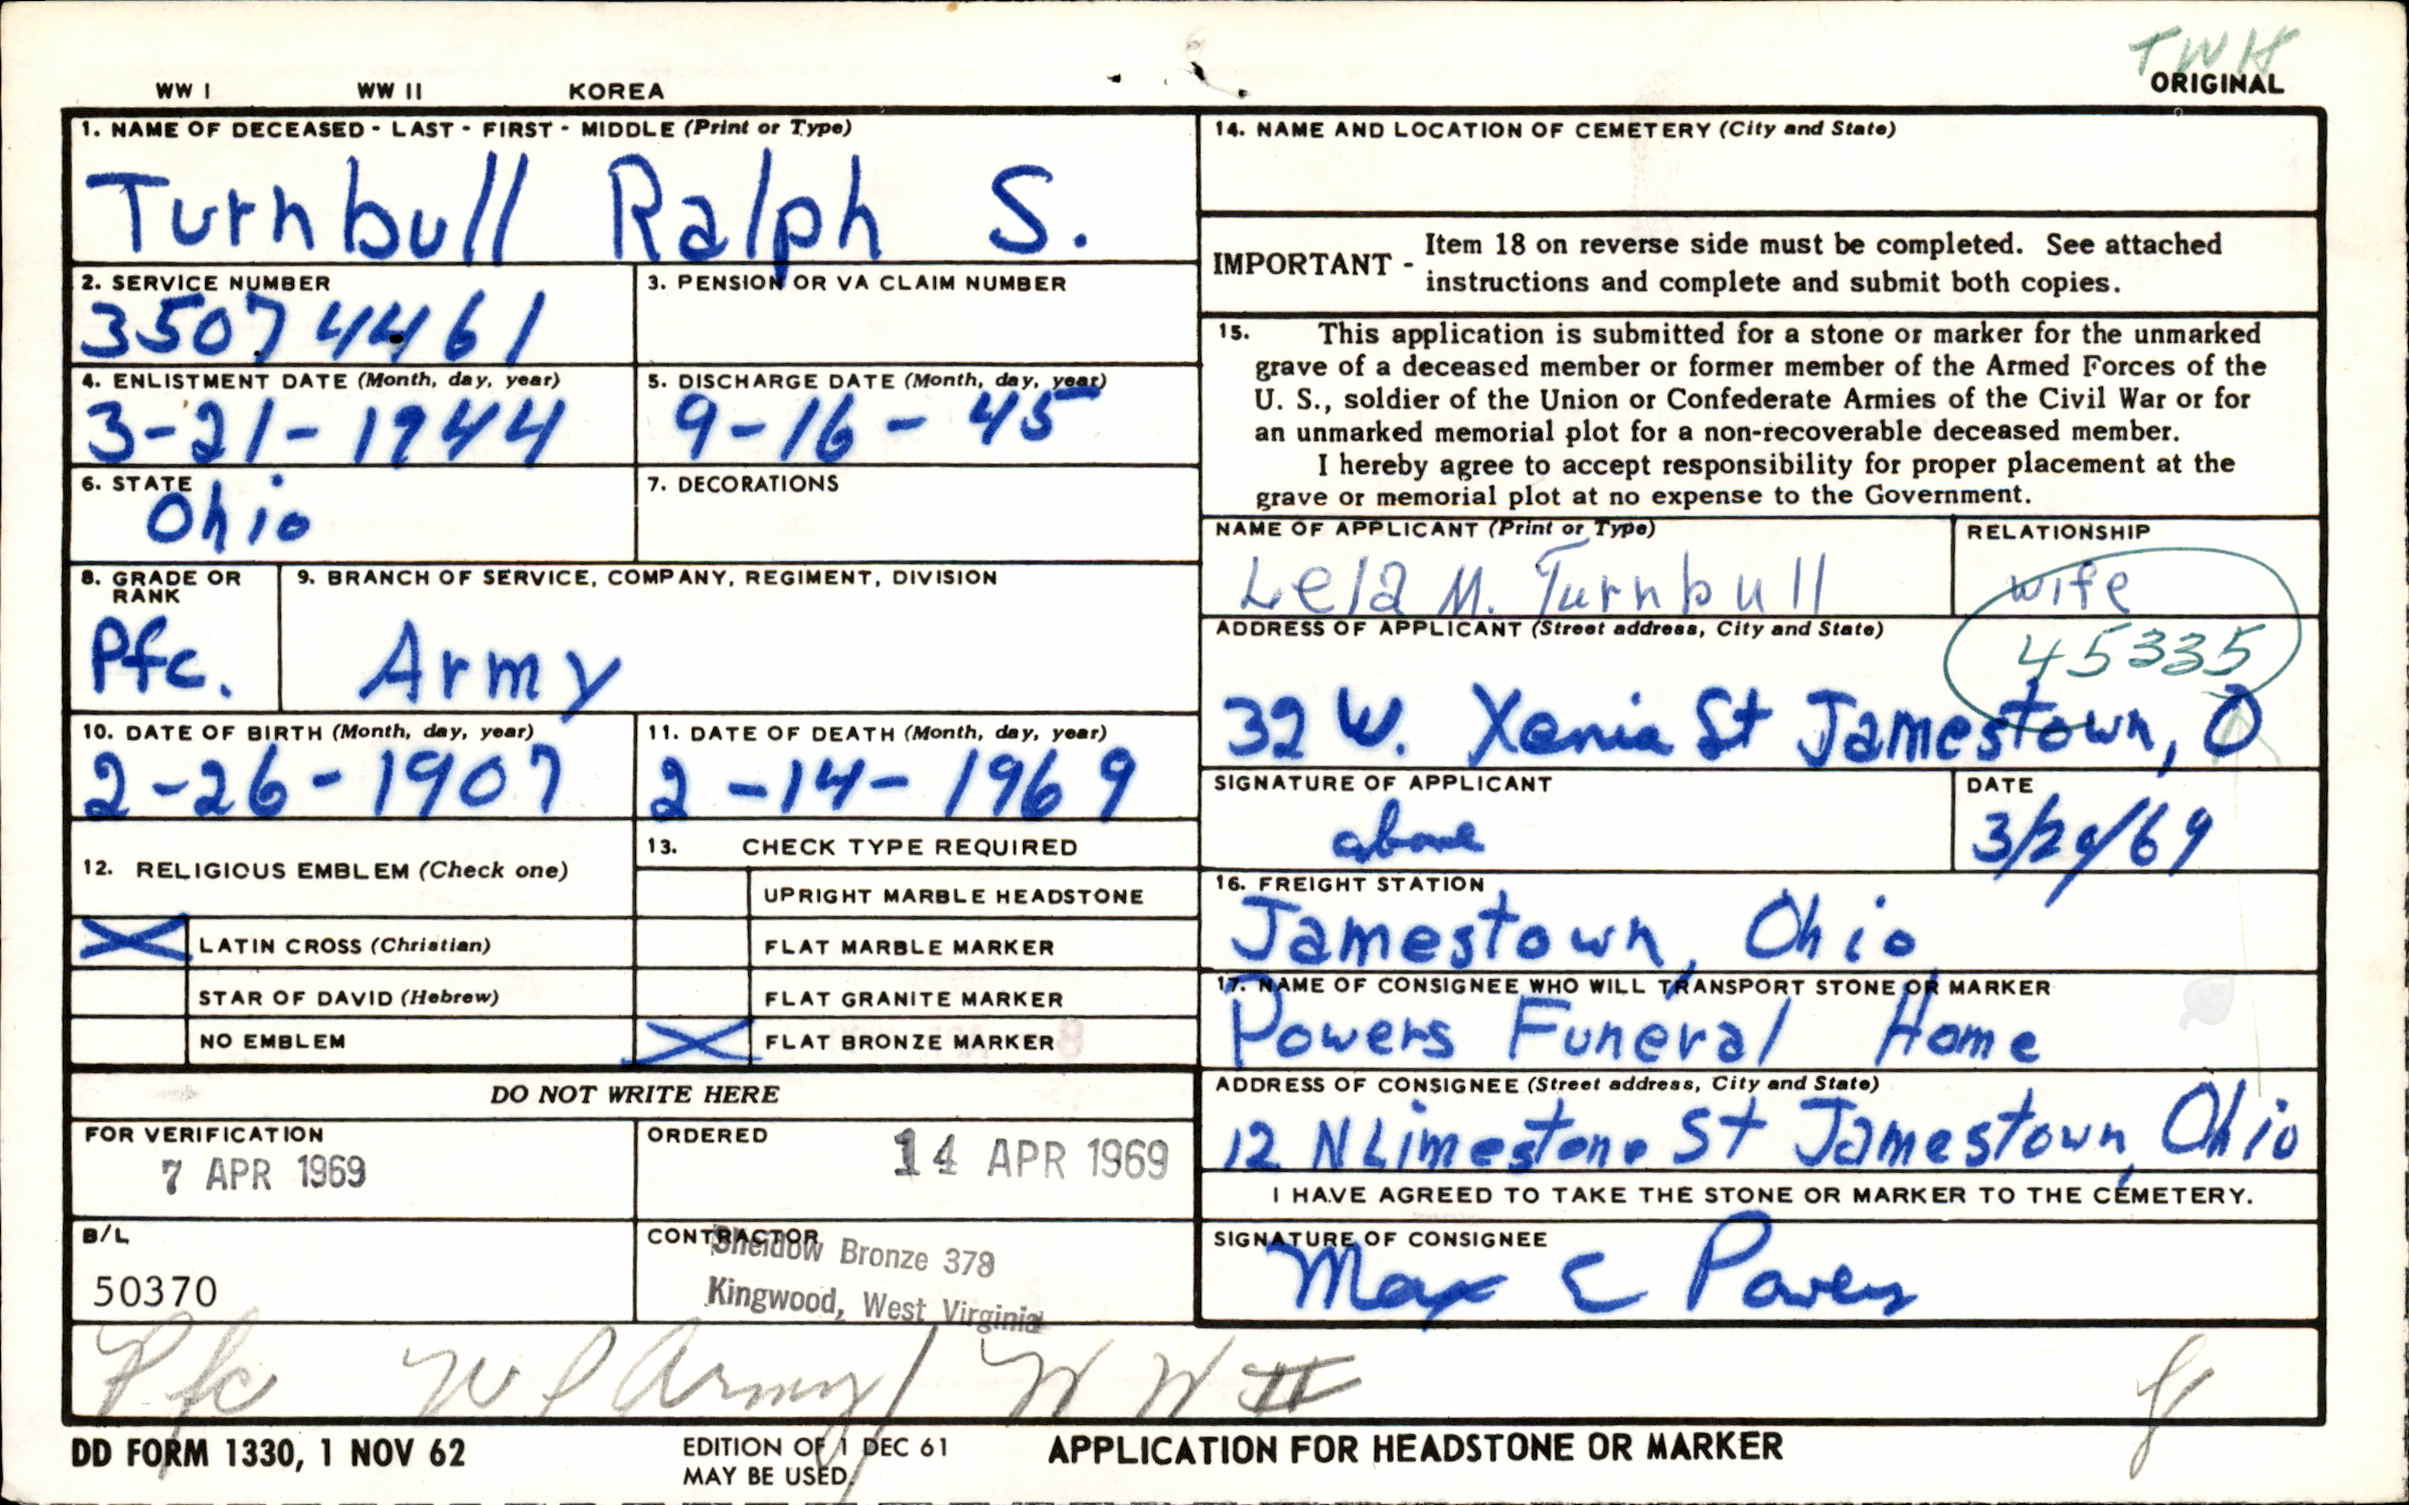 TWH
WW I WW II KOREA ORIGINAL
1. NAME OF DECEASED - LAST - FIRST - MIDDLE (Print or Type)
Turnbull Ralph S.
2. SERVICE NUMBER
35074461
3. PENSION OR VA CLAIM NUMBER
4. ENLISTMENT DATE (Month, day, year)
3-21-1944
5. DISCHARGE DATE (Month, day, year)
9-16-45
6. STATE
Ohio
7. DECORATIONS
8. GRADE OR RANK
Pfc.
9. BRANCH OF SERVICE, COMPANY, REGIMENT, DIVISION
Army
10. DATE OF BIRTH (Month, day, year)
2-26-1907
11. DATE OF DEATH (Month, day, year)
2-14-1969
12. RELIGIOUS EMBLEM (Check one)
X LATIN CROSS (Christian)
STAR OF DAVID (Hebrew)
NO EMBLEM
13. CHECK TYPE REQUIRED
UPRIGHT MARBLE HEADSTONE
FLAT MARBLE MARKER
FLAT GRANITE MARKER
X FLAT BRONZE MARKER
DO NOT WRITE HERE
FOR VERIFICATION
7 APR 1969
ORDERED
14 APR 1969
B/L
50370
CONTRACTOR
Sheidow Bronze 378
Kingwood, West Virginia
14. NAME AND LOCATION OF CEMETERY (City and State)
IMPORTANT - Item 18 on reverse side must be completed. See attached
instructions and complete and submit both copies.
15. This application is submitted for a stone or marker for the unmarked
grave of a deceased member or former member of the Armed Forces of the
U. S., soldier of the Union or Confederate Armies of the Civil War or for
an unmarked memorial plot for a non-recoverable deceased member.
I hereby agree to accept responsibility for proper placement at the
grave or memorial plot at no expense to the Government.
NAME OF APPLICANT (Print or Type)
Lela M. Turnbull
RELATIONSHIP
wife
ADDRESS OF APPLICANT (Street address, City and State)
45335
32 W. Xenia St Jamestown, O
SIGNATURE OF APPLICANT
above
DATE
3/29/69
16. FREIGHT STATION
Jamestown, Ohio
17. NAME OF CONSIGNEE WHO WILL TRANSPORT STONE OR MARKER
Powers Funeral Home
ADDRESS OF CONSIGNEE (Street address, City and State)
12 N Limestone St Jamestown, Ohio
I HAVE AGREED TO TAKE THE STONE OR MARKER TO THE CEMETERY.
SIGNATURE OF CONSIGNEE
Max E Powers
Pfc US Army WW II
DD FORM 1330, 1 NOV 62
EDITION OF 1 DEC 61
MAY BE USED.
APPLICATION FOR HEADSTONE OR MARKER